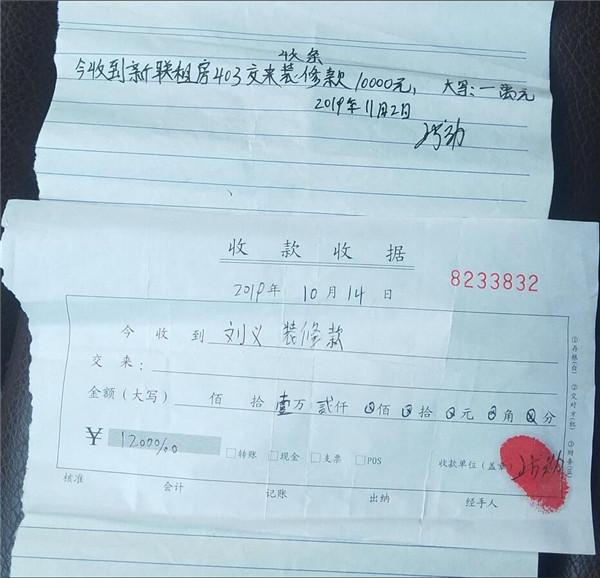 收条
今收到新联租房403交来装修款10000元, 大写:一万元
2019年11月2日
收款收据
8233832
2019年 10月 14日
今收到 刘义 装修款
交来:
金额(大写) 佰 拾 壹万 贰仟 0佰 0拾 0元 0角 0分
¥ 12000%00
□转账 □现金 □支票 □POS
收款单位(盖章)
核准 会计 记账 出纳 经手人